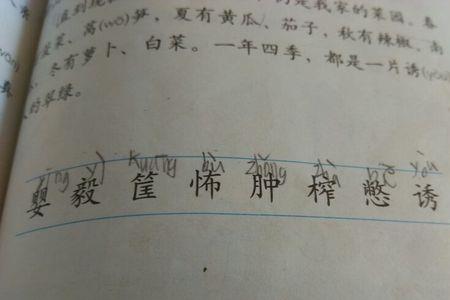 直到现
的是我家的菜园。春
韭菜、莴(wō)笋，夏有黄瓜、茄子，秋有辣椒、南
冬有萝卜、白菜。一年四季，都是一片诱(yòu)
的翠绿。
yīng yì kuāng bù zhǒng zhà biē yòu
婴 毅 筐 怖 肿 榨 憋 诱